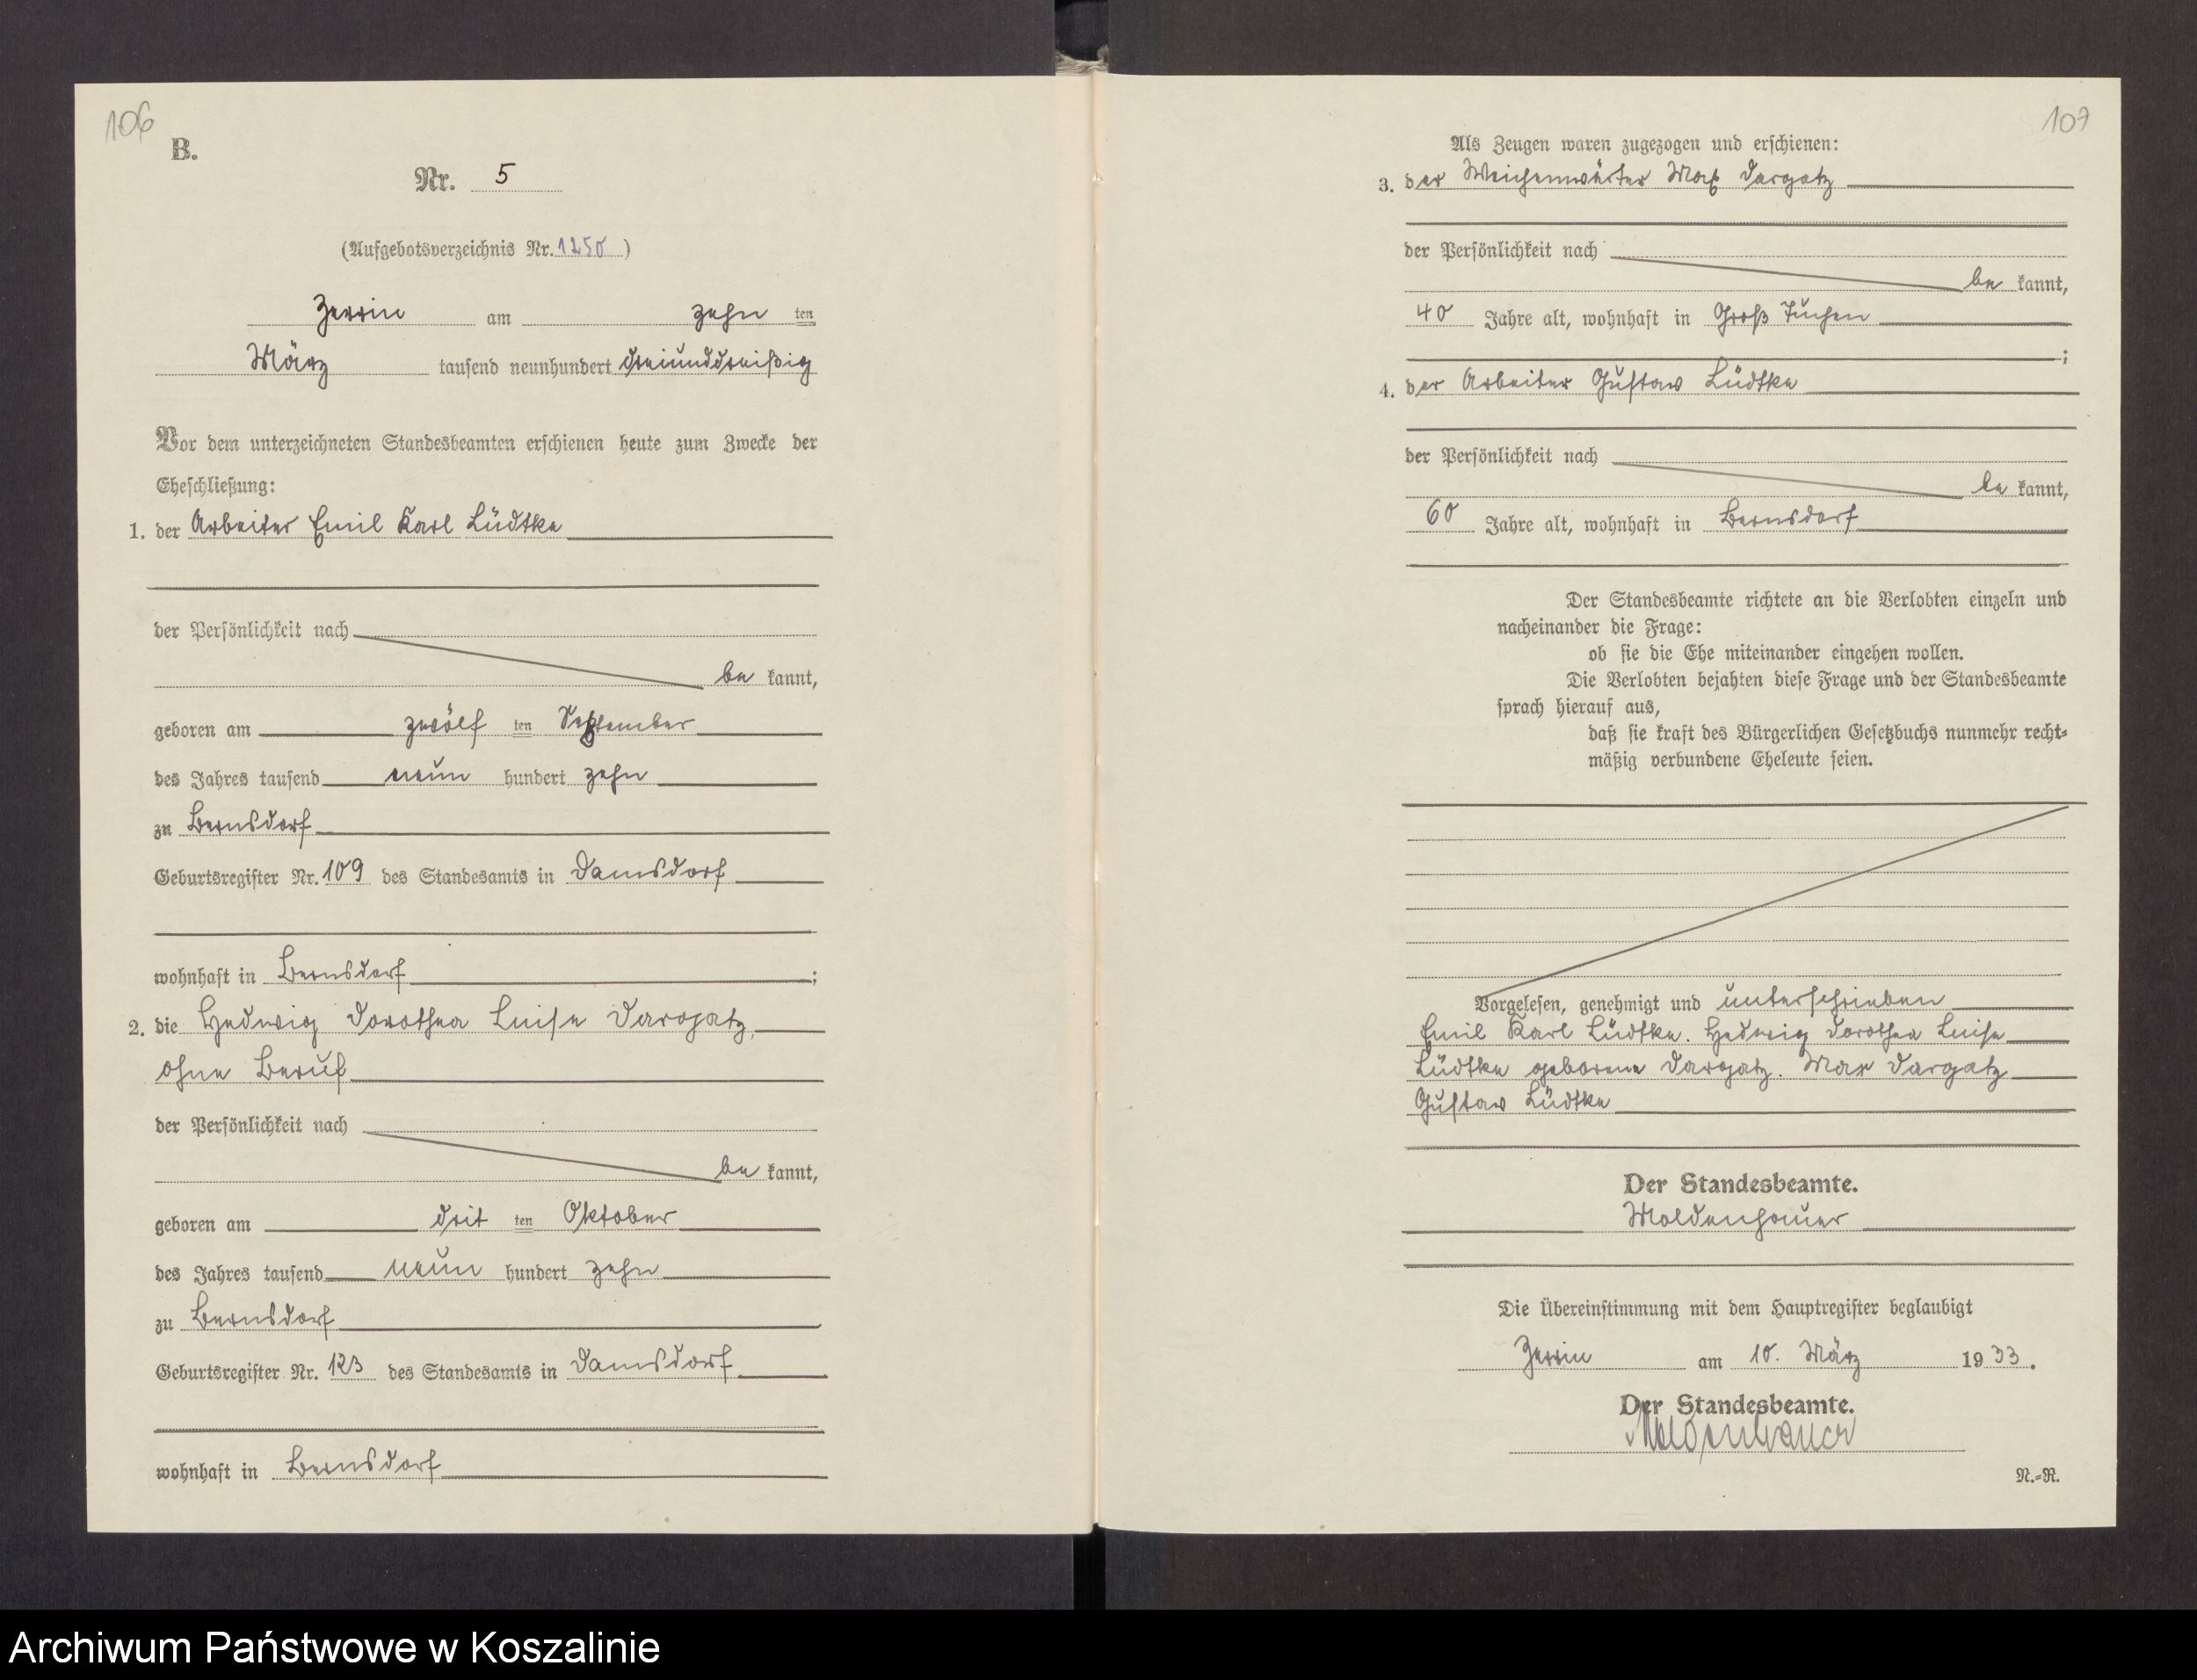 106
B.
Nr. 5
(Aufgebotsverzeichnis Nr. 1250)
Zerrin am zehn ten
März tausend neunhundert dreiunddreißig
Vor dem unterzeichneten Standesbeamten erschienen heute zum Zwecke der
Eheschließung:
1. der Arbeiter Emil Karl Lüdtke
der Persönlichkeit nach
be kannt,
geboren am zwölf ten September
des Jahres tausend neun hundert zehn
zu Bernsdorf
Geburtsregister Nr. 109 des Standesamts in Damsdorf
wohnhaft in Bernsdorf ;
2. die Hedwig Dorothea Luise Dargatz,
ohne Beruf
der Persönlichkeit nach
be kannt,
geboren am drit ten Oktober
des Jahres tausend neun hundert zehn
zu Bernsdorf
Geburtsregister Nr. 123 des Standesamts in Damsdorf
wohnhaft in Bernsdorf
107
Als Zeugen waren zugezogen und erschienen:
3. der Weichenwärter Max Dargatz
der Persönlichkeit nach
be kannt,
40 Jahre alt, wohnhaft in Groß Tuchen
;
4. der Arbeiter Gustav Lüdtke
der Persönlichkeit nach
be kannt,
60 Jahre alt, wohnhaft in Bernsdorf
Der Standesbeamte richtete an die Verlobten einzeln und
nacheinander die Frage:
ob sie die Ehe miteinander eingehen wollen.
Die Verlobten bejahten diese Frage und der Standesbeamte
sprach hierauf aus,
daß sie kraft des Bürgerlichen Gesetzbuchs nunmehr recht-
mäßig verbundene Eheleute seien.
Vorgelesen, genehmigt und unterschrieben
Emil Karl Lüdtke. Hedwig Dorothea Luise
Lüdtke geborene Dargatz. Max Dargatz
Gustav Lüdtke
Der Standesbeamte.
Moldenhauer
Die Übereinstimmung mit dem Hauptregister beglaubigt
Zerrin am 10. März 1933.
Der Standesbeamte.
Moldenhauer
N.-R.
Archiwum Państwowe w Koszalinie